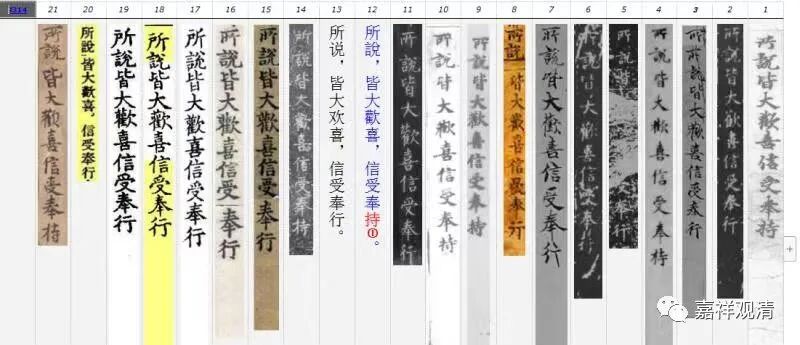 21 20 19 18 17 16 15 14 13 12 11 10 9 8 7 6 5 4 3 2 1
所說皆大歡喜信受奉持
所說,皆大歡喜。信受奉行.
所說皆大歡喜信受奉行
所說皆大歡喜信受奉行
所說皆大歡喜信受奉行
所說皆大歡喜信受奉行
所說皆大歡喜信受奉行
所說皆大歡喜信受奉持
所说,皆大欢喜,信受奉行。
所說,皆大歡喜,信受奉持①。
所說皆大歡喜信受奉行
所說皆大歡喜信受奉持
所說皆大歡喜信受奉持
所說皆大歡喜信受奉行
所說皆大歡喜信受奉行
所說皆大歡喜信受奉行
所說皆大歡喜信受奉行
所說皆大歡喜信受奉持
所說皆大歡喜信受奉行
所說皆大歡喜信受奉行
所說皆大歡喜信受奉持
嘉祥观清